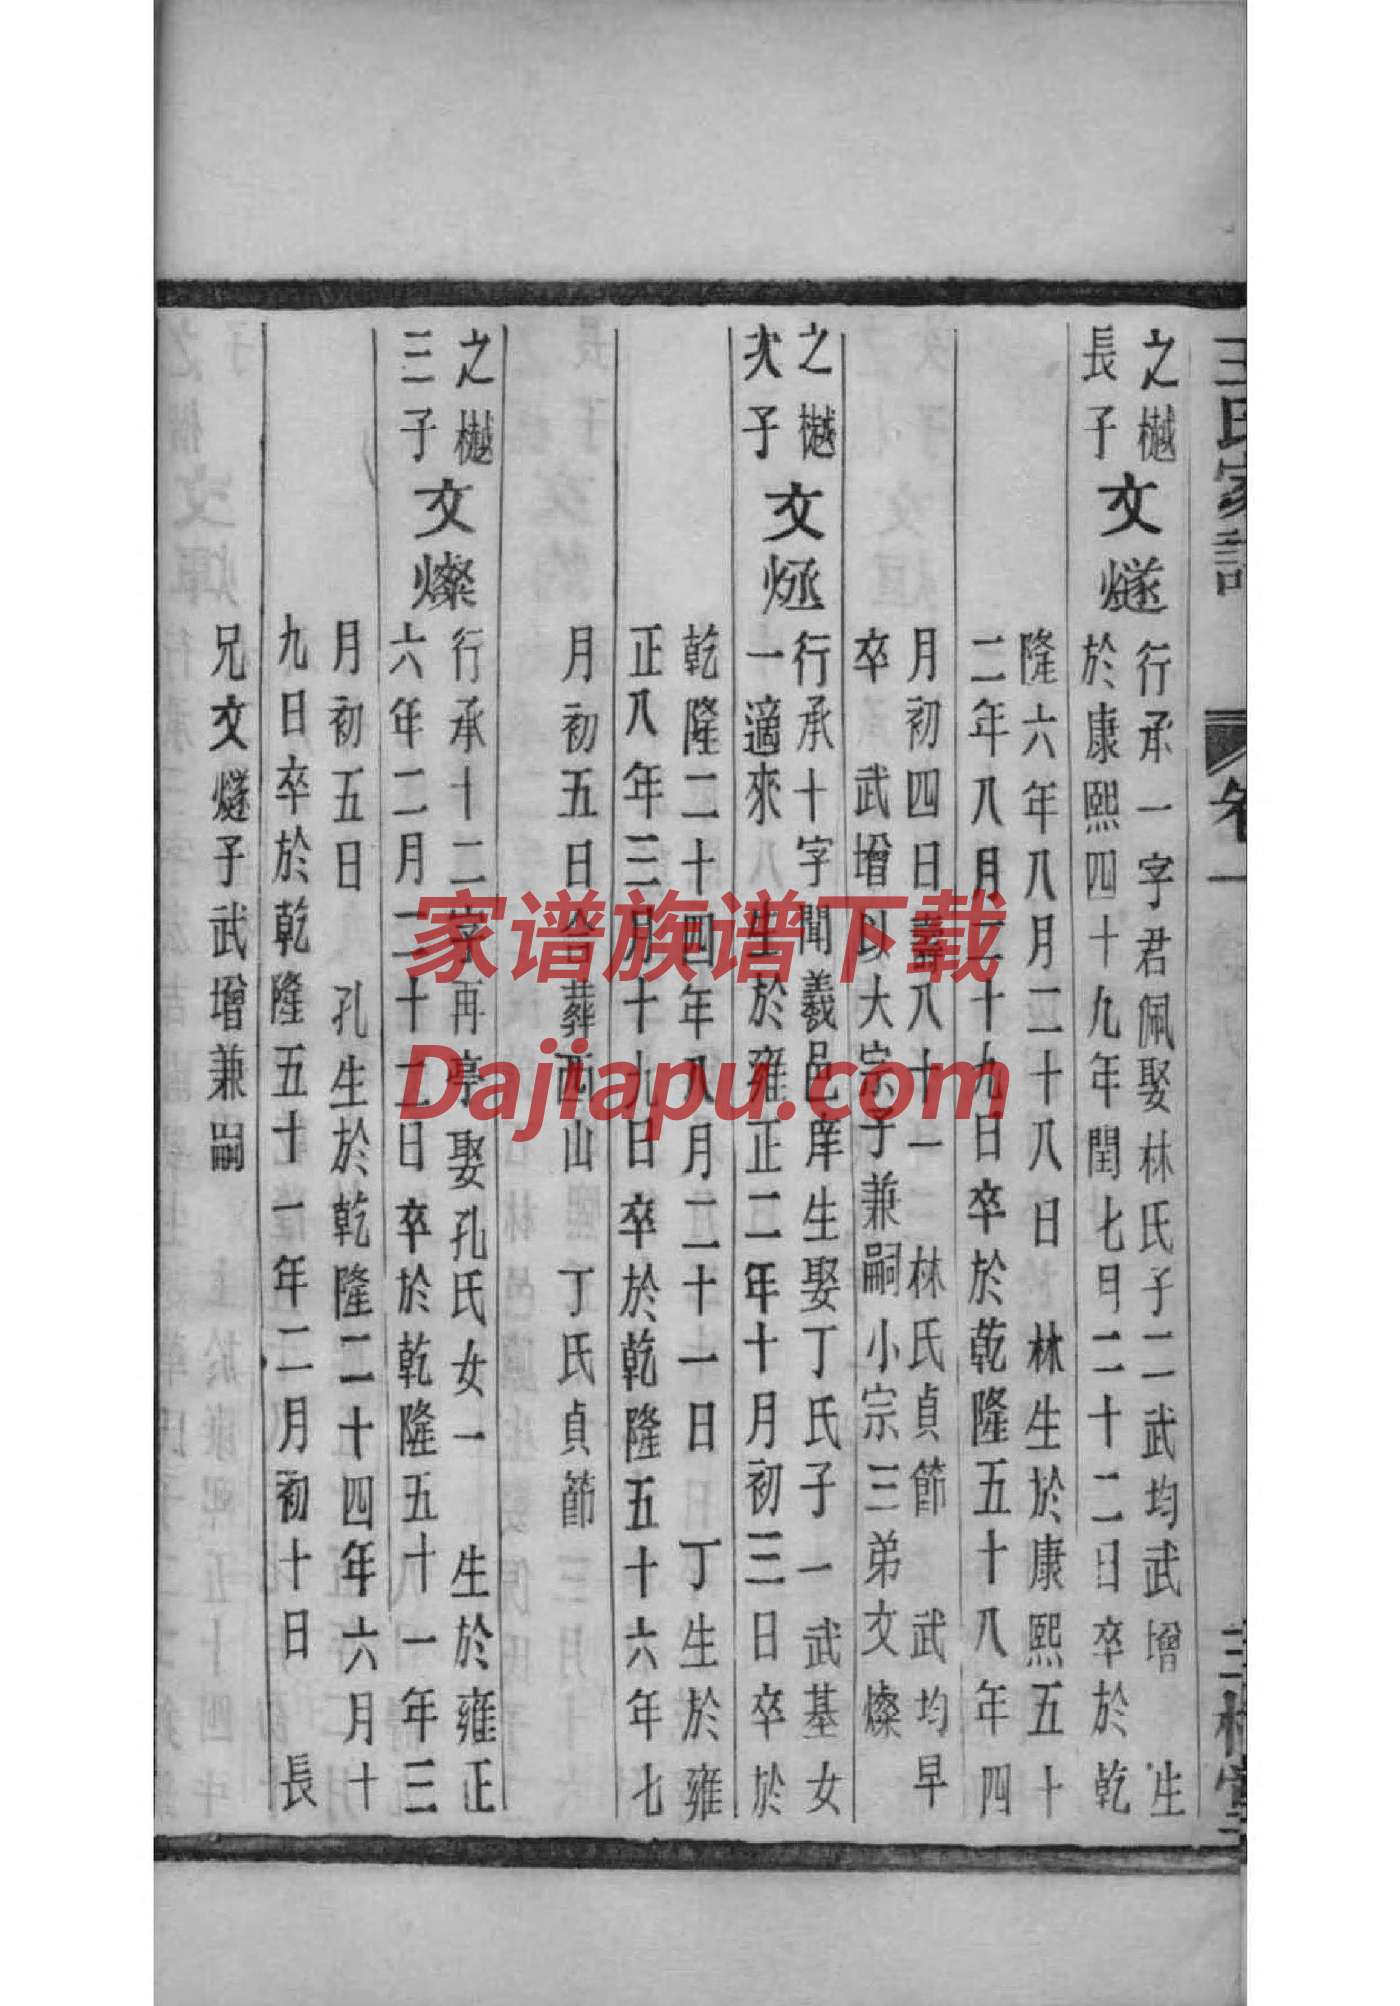 王氏家譜
卷一
三槐堂
之樾
長子
文燧
行承一字君佩娶林氏子二武均武增 生
於康熙四十九年閏七月二十二日卒於乾
隆六年八月二十八日 林生於康熙五十
二年八月二十九日卒於乾隆五十八年四
月初四日壽八十一 林氏貞節 武均早
卒 武增以大宗子兼嗣小宗三弟文燦
之樾
次子
文烝
行承十字聞義邑庠生娶丁氏子一武基女
一適來 生於雍正二年十月初三日卒於
乾隆二十四年八月二十一日 丁生於雍
正八年三月十九日卒於乾隆五十六年七
月初五日合葬西山 丁氏貞節
之樾
三子
文燦
行承十二字再亭娶孔氏女一 生於雍正
六年二月二十二日卒於乾隆五十一年三
月初五日 孔生於乾隆二十四年六月十
九日卒於乾隆五十一年二月初十日 長
兄文燧子武增兼嗣
家谱族谱下载
Dajiapu.com